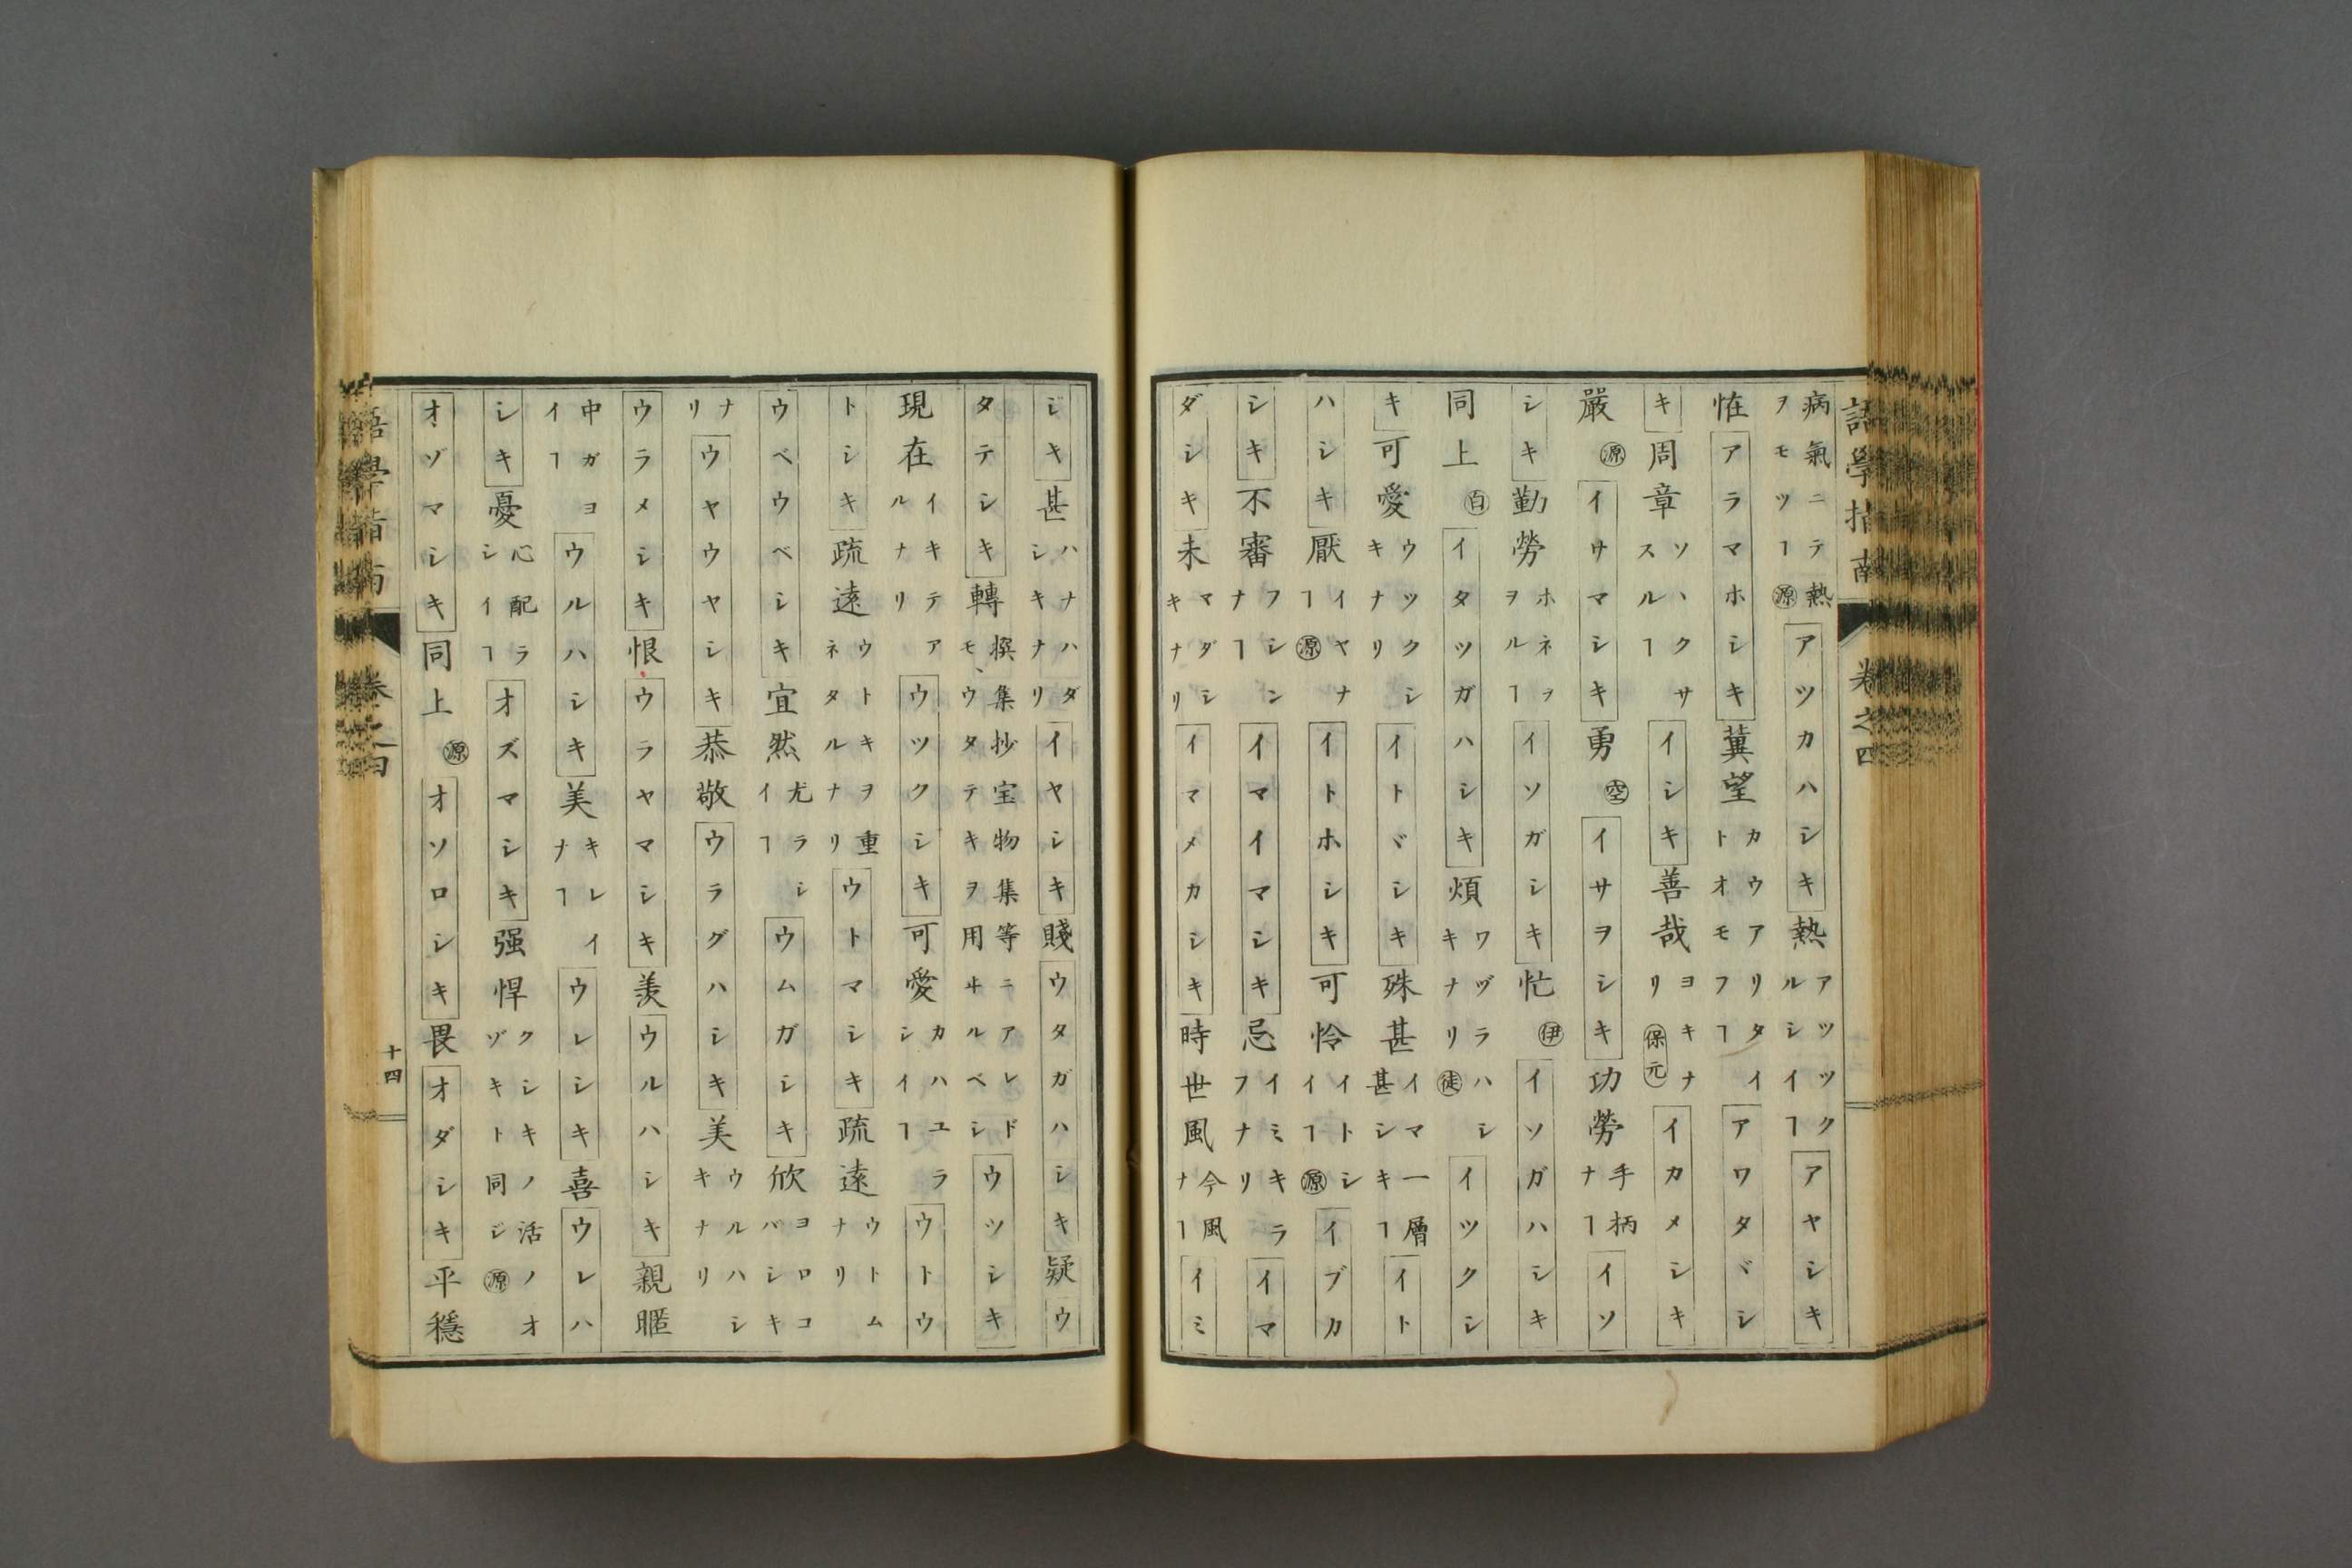 語學指南 卷之四
病氣ニテ熱ヲモツヿ源アツカハシキ熱アツツクルシイヿアヤシキ
恠アラマホシキ冀望カウアリタイトオモフヿアワタヾシ
キ周章ソヽクサスルヿイシキ善哉ヨキナリ保元イカメシキ
嚴源イサマシキ勇空イサヲシキ功勞手柄ナヿイソ
シキ勤勞ホネヲヲルヿイソガシキ忙伊イソガハシキ
同上百イタツガハシキ煩ワヅラハシキナリ徒イツクシ
キ可愛ウツクシキナリイトヾシキ殊甚イマ一層甚シキヿイト
ハシキ厭イヤナヿ源イトホシキ可怜イトシイヿ源イブカ
シキ不審フシンナヿイマイマシキ忌イミキラフナリイマ
ダシキ未マダシキナリイマメカシキ時世風今風ナヿイミ
ジキ甚ハナハダシキナリイヤシキ賤ウタガハシキ疑ウ
タテシキ轉撰集抄宝物集等ニアレドモ、ウタテキヲ用ヰルベシウツシキ
現在イキテアルナリウツクシキ可愛カハユラシイヿウトウ
トシキ疏遠ウトキヲ重ネタルナリウトマシキ疏遠ウトムナリ
ウベウベシキ宜然尤ラシイヿウムガシキ欣ヨロコバシキ
ナリウヤウヤシキ恭敬ウラグハシキ美ウルハシキナリ
ウラメシキ恨ウラヤマシキ羨ウルハシキ親暱
中ガヨイヿウルハシキ美キレイナヿウレシキ喜ウレハ
シキ憂心配ラシイヿオズマシキ强悍クシキノ活ノオゾキト同ジ源
オゾマシキ同上源オソロシキ畏オダシキ平穩
語學指南 卷之四 十四